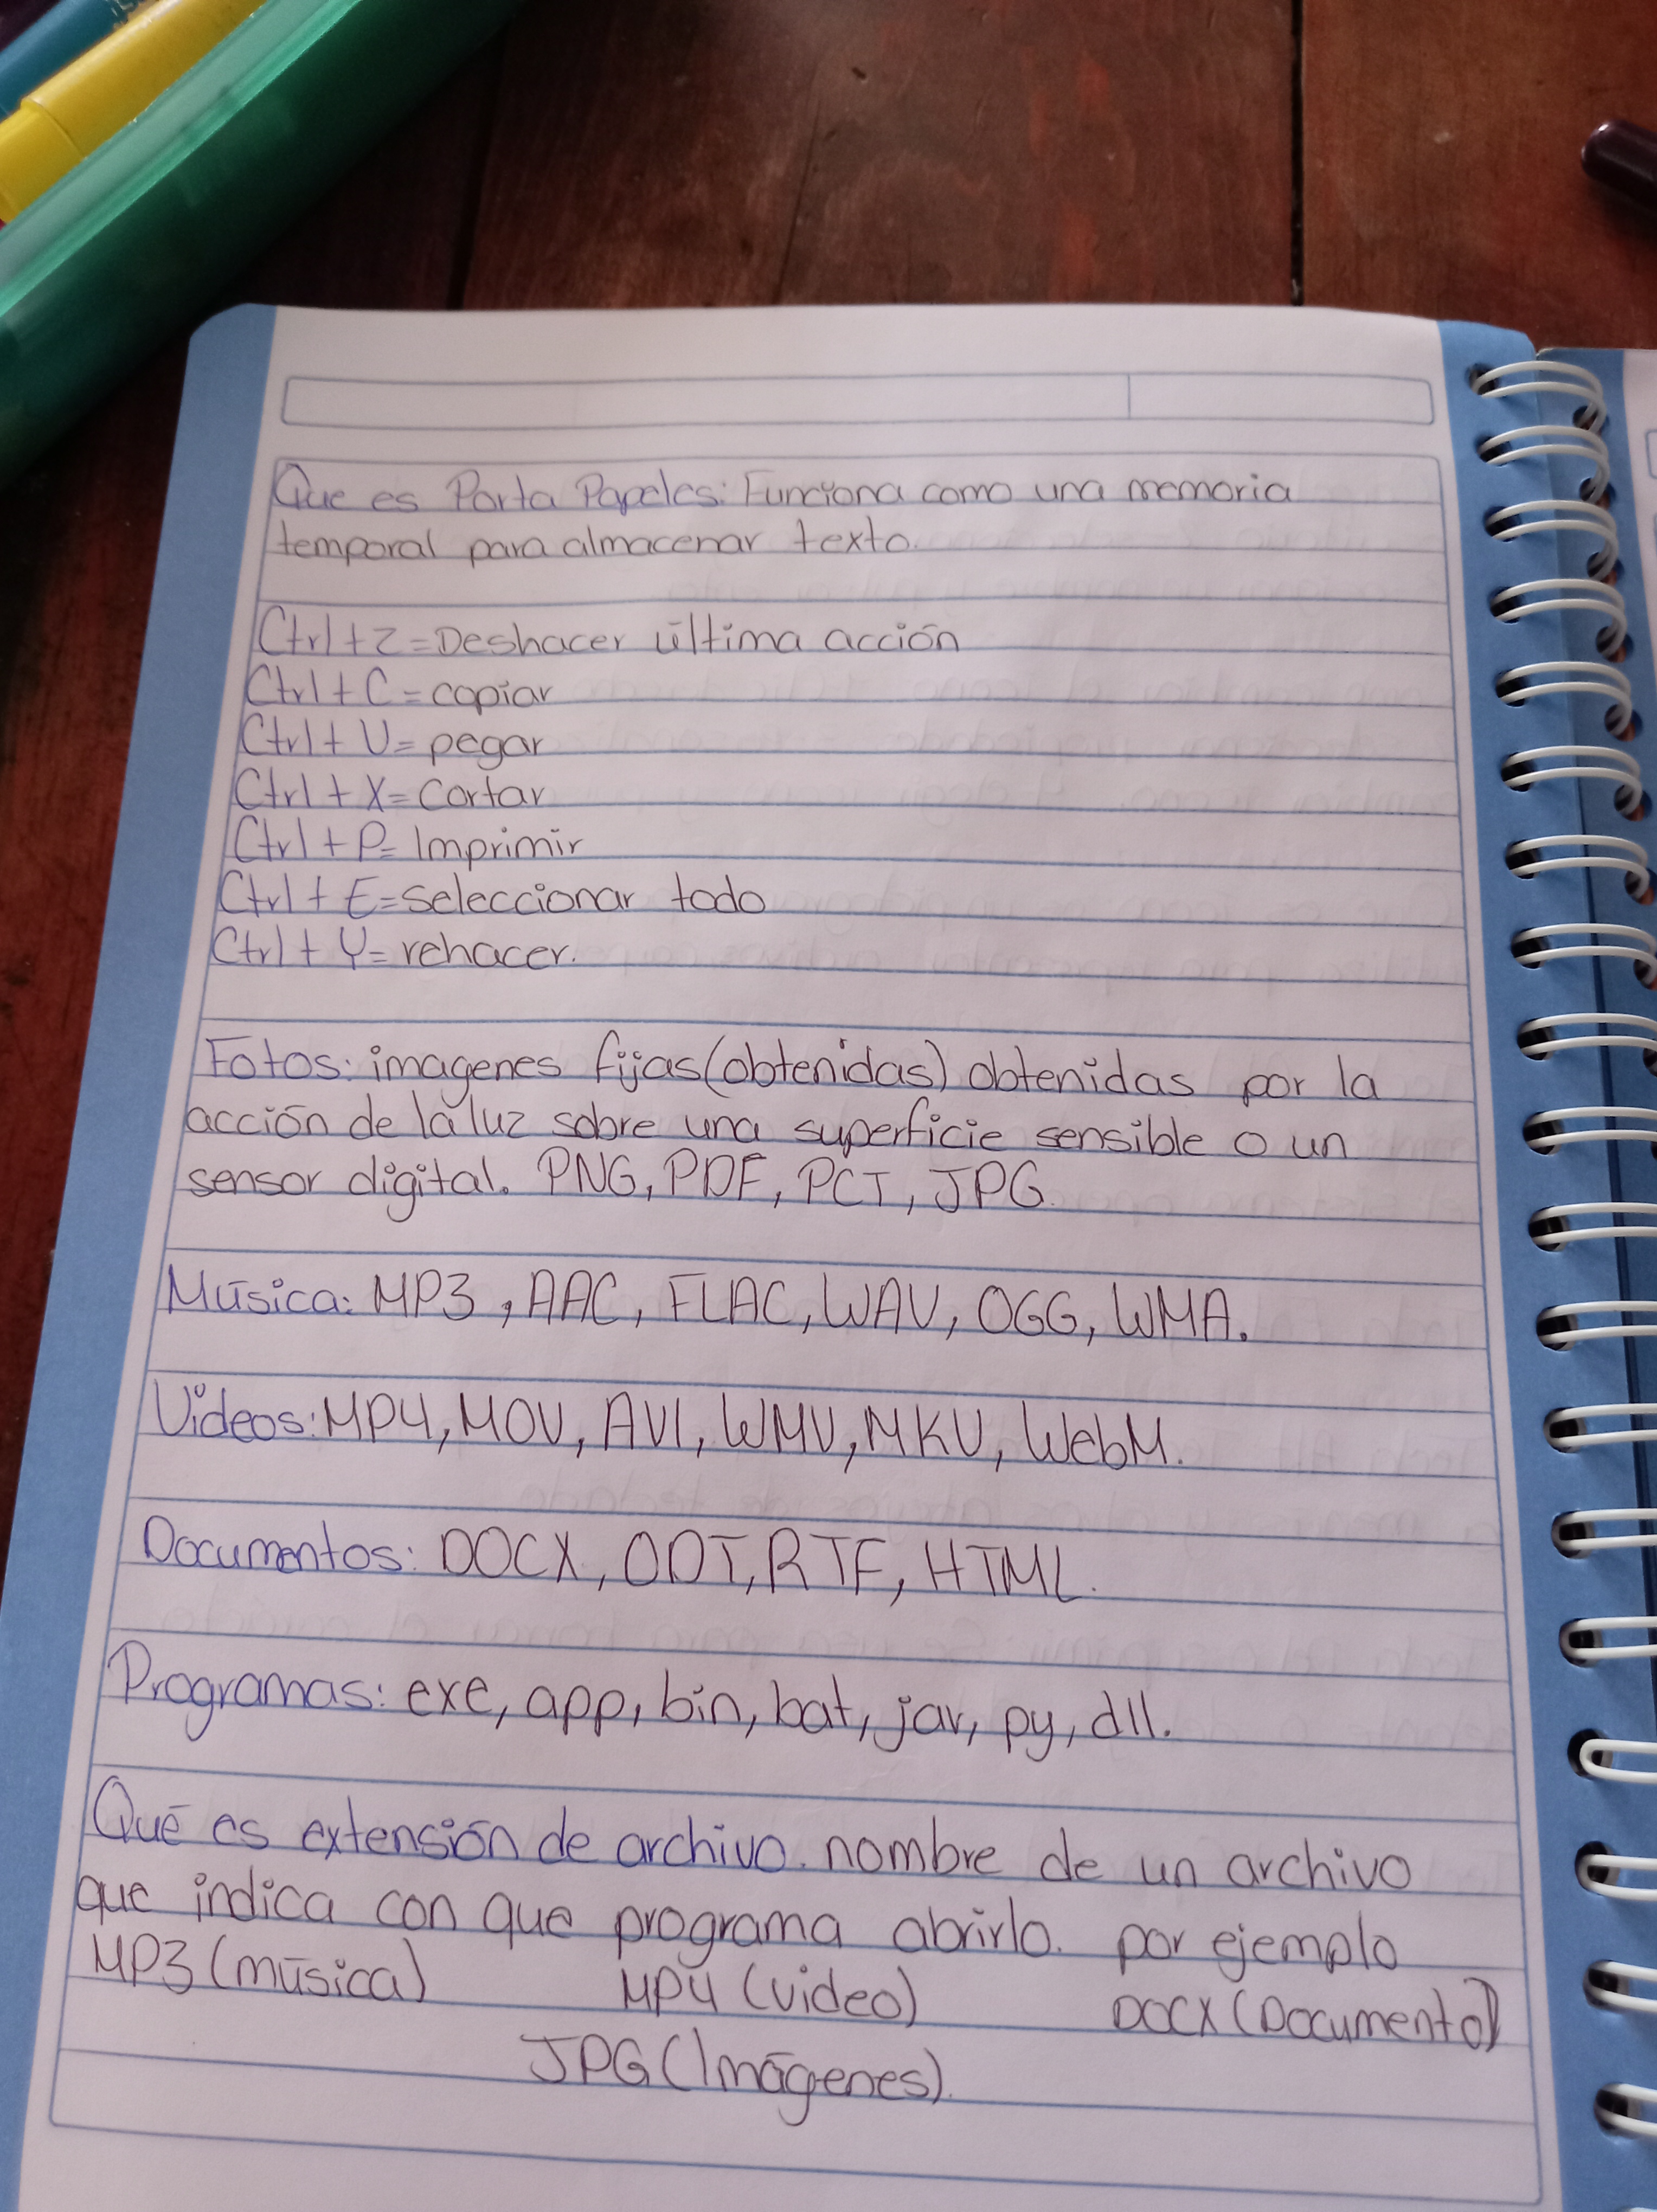 Que es Porta Papeles: Funciona como una memoria
temporal para almacenar texto.
Ctrl+Z=Deshacer última acción
Ctrl+C=copiar
Ctrl+V=pegar
Ctrl+X=Cortar
Ctrl+P=Imprimir
Ctrl+E=seleccionar todo
Ctrl+Y=rehacer.
Fotos: imagenes fijas(obtenidas) obtenidas por la
acción de la luz sobre una superficie sensible o un
sensor digital. PNG, PDF, PCT, JPG.
Música: MP3, AAC, FLAC, WAV, OGG, WMA.
Videos: MP4, MOV, AVI, WMV, MKV, WebM.
Documentos: DOCX, ODT, RTF, HTML.
Programas: exe, app, bin, bat, jar, py, dll.
Qué es extensión de archivo. nombre de un archivo
que indica con que programa abrirlo. por ejemplo
MP3 (música) MP4 (video) DOCX (Documento)
JPG (Imágenes).